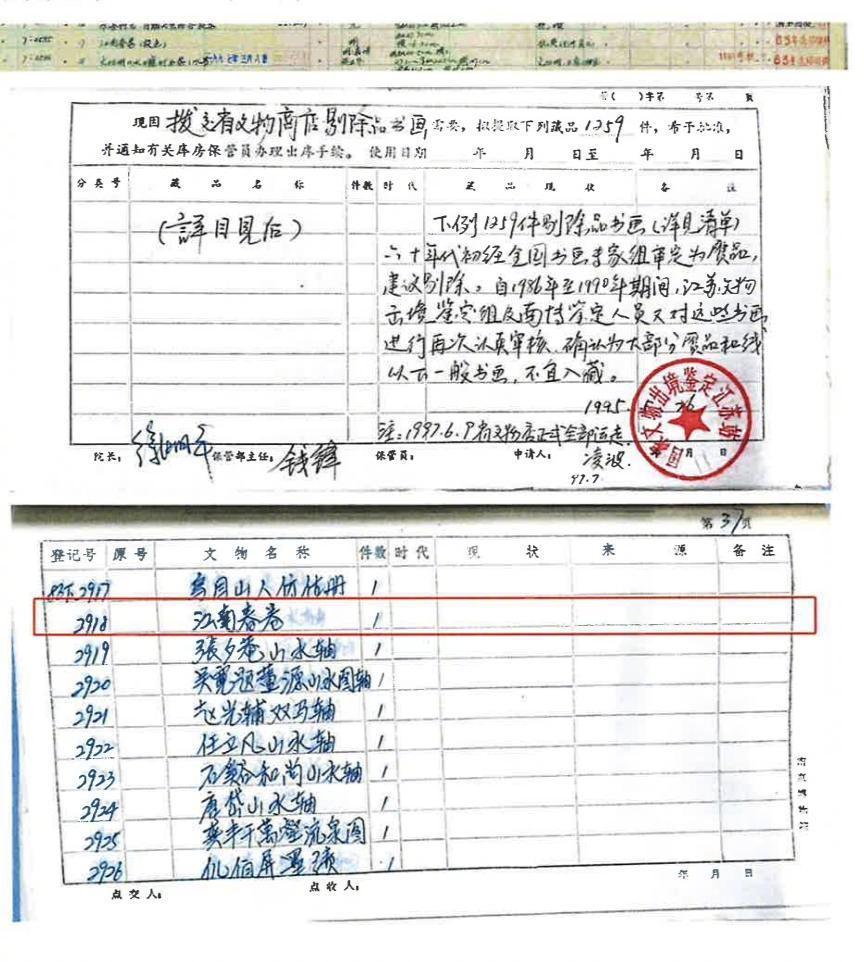 7:2595
江南春卷（设色）
63年
六七年三月八日
63年
第（ ）字第 号第 页
现因 拨交省文物商店剔除品书画 需要，拟提取下列藏品 1259 件，希予批准，
并通知有关库房保管员办理出库手续。 使用日期 年 月 日至 年 月 日
分类号 藏品名称 件数 时代 藏品现状 备注
（詳目見后）
下例1259件剔除品书画（详見清单）
六十年代初经全国书画专家组审定为贋品，
建议剔除。自1986年至1990年期间，江苏文物
出境鉴定组及南博鉴定人员又对这些书画
进行再次认真审核，确认为大部分贋品和线
以下一般书画，不宜入藏。
1995.
26
国家文物出境鉴定江苏站
注：1997.6.9省文物店正式全部运走
院长： 徐湖平 保管部主任： 钱锋 保管员： 申请人： 凌波. 年 月 日
97.7
第 37 页
登记号 原号 文物名称 件数 时代 现状 来源 备注
2917 烏目山人仿古册 1
2918 江南春卷 1
2919 張夕菴山水轴 1
2920 吴寬題董源山水图轴 1
2921 赵光辅双马轴 1
2922 任立凡山水轴 1
2923 石谿和尚山水轴 1
2924 唐岱山水轴 1
2925 龚半千萬壑流泉图 1
2926 1
年 月 日
点交人： 点收人：